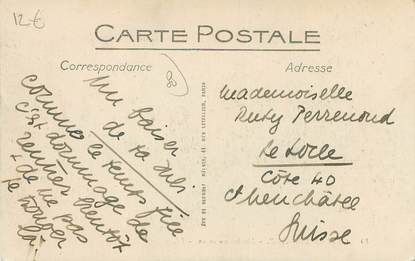 12 €
CARTE POSTALE
Correspondance
Adresse
Un baiser
de ta Mri
comme le temps file
c'est dommage de
rentrer bientôt
+ de ne pas
te trouver
là.
Mademoiselle
Ruty Perrenoud
Le Locle
Côte 40
Neuchâtel
Suisse